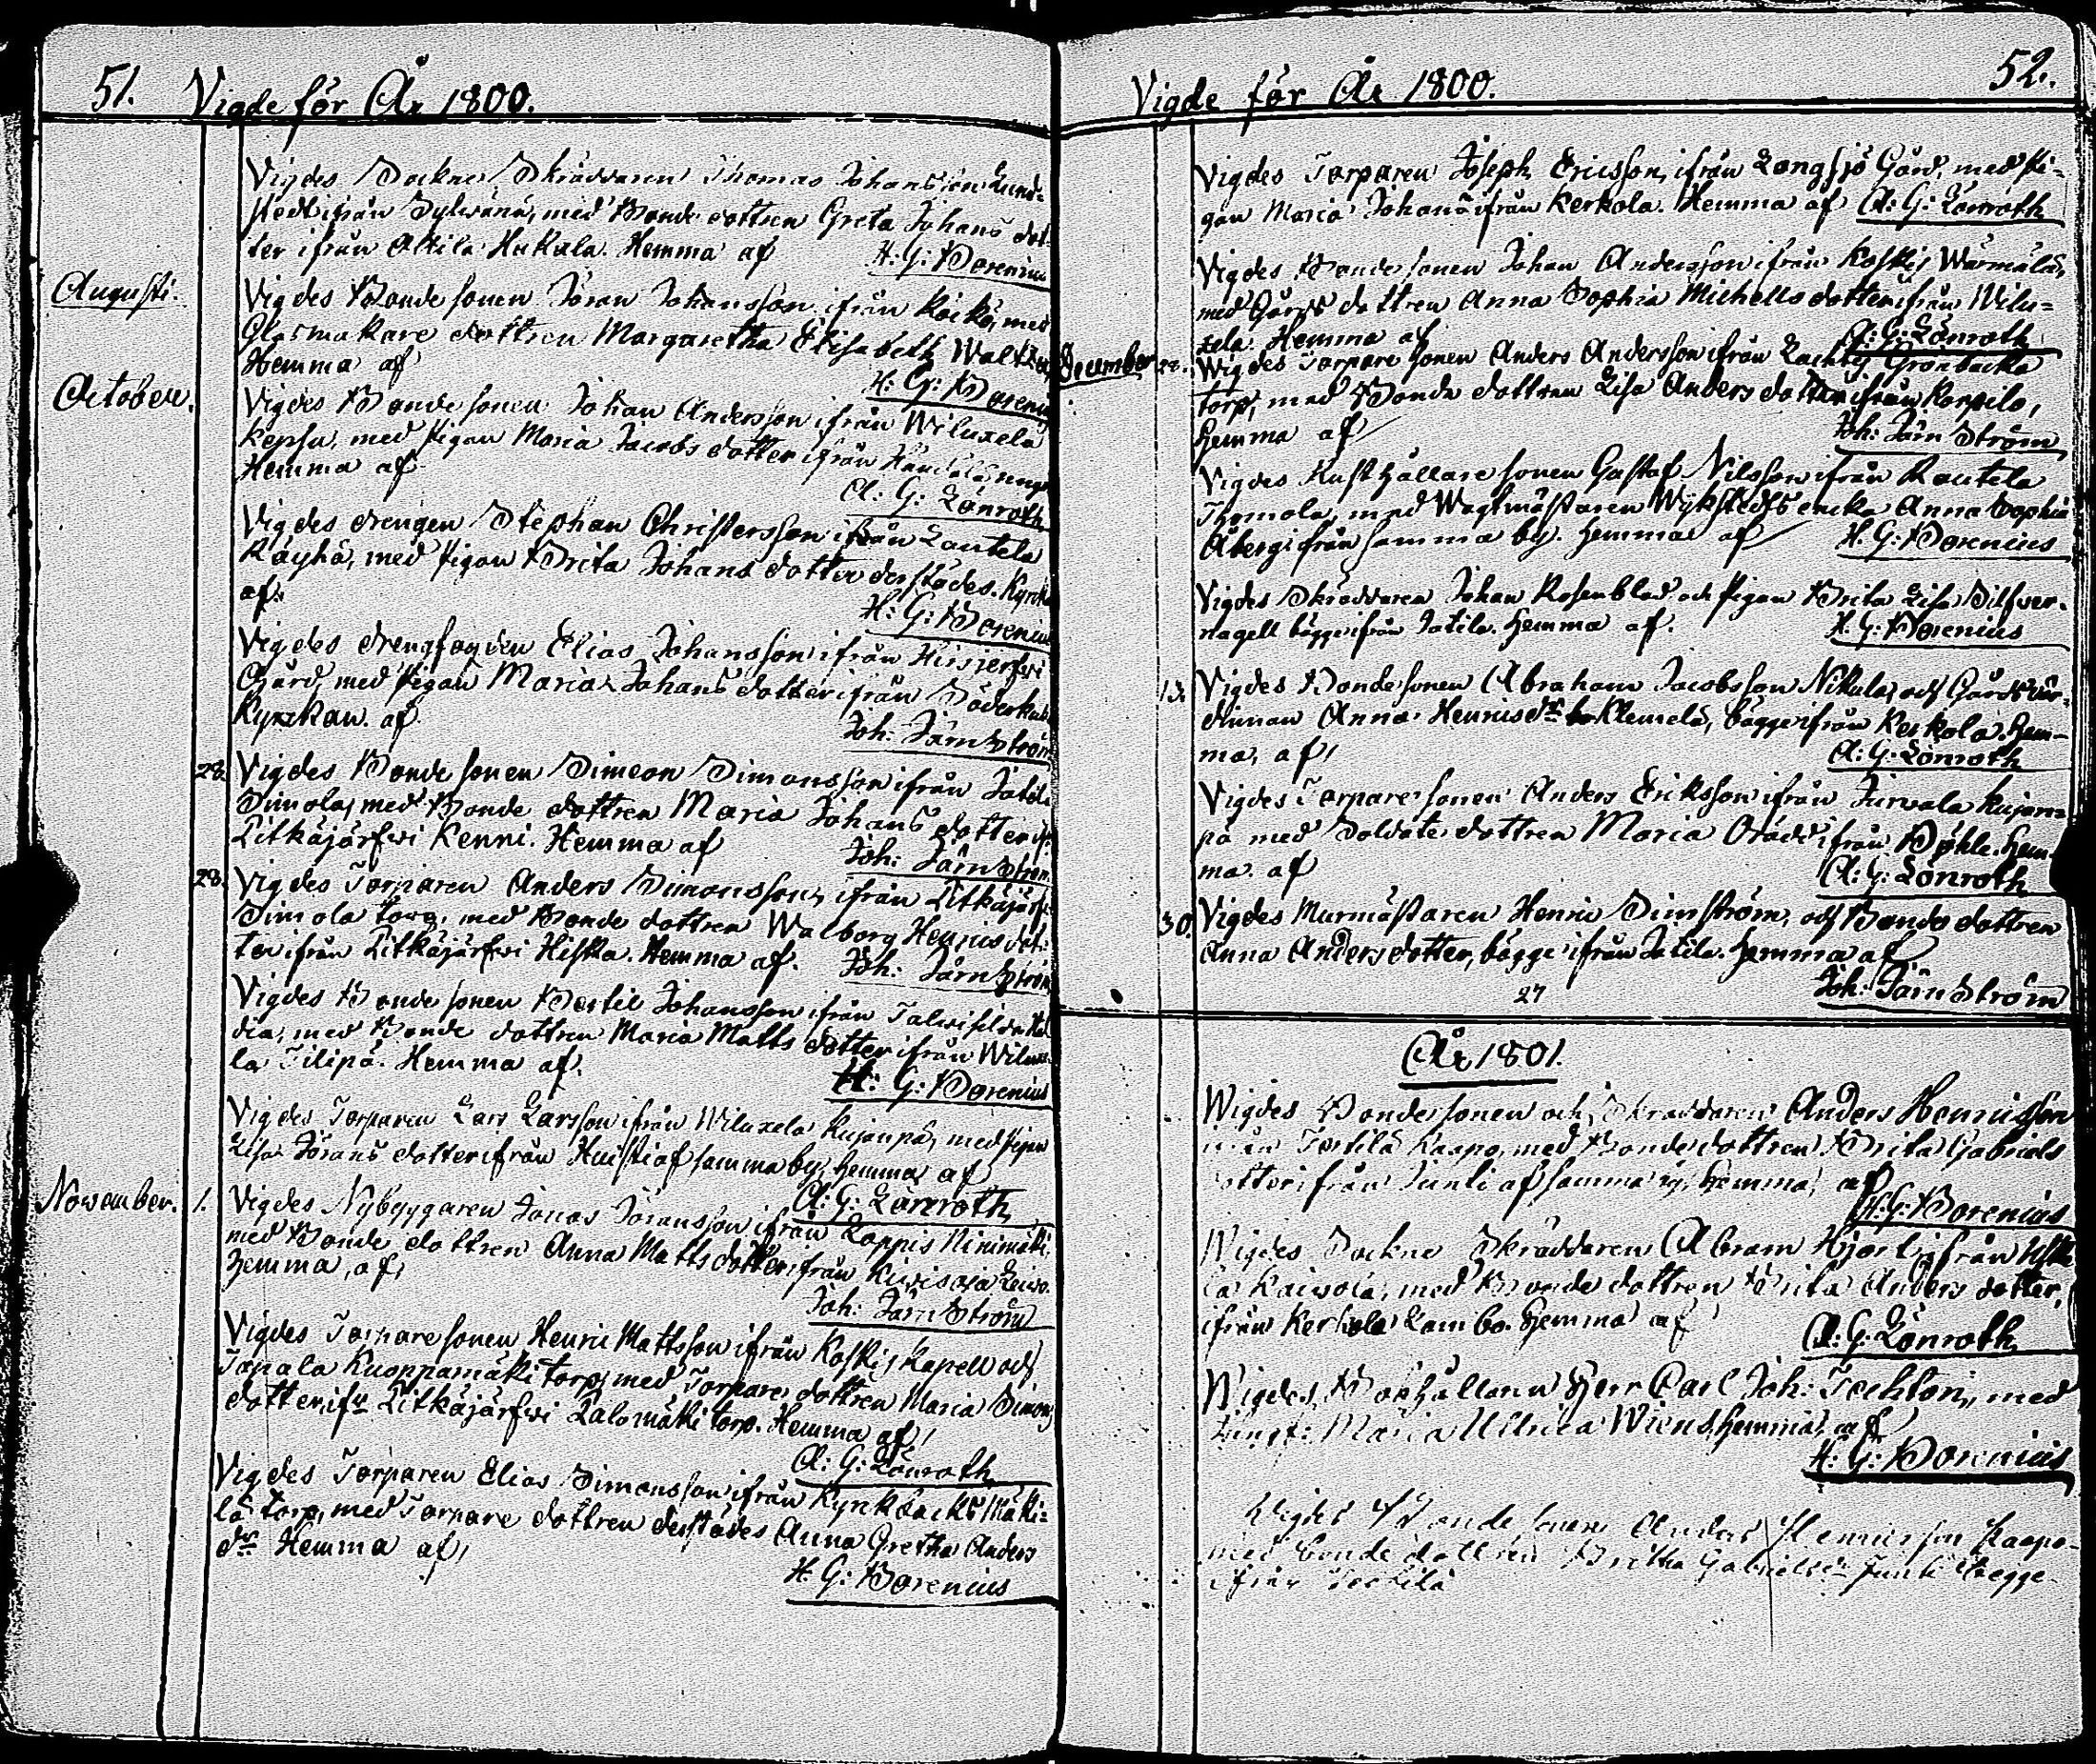 51. Vigde för År 1800.
Vigdes Sockne Skräddaren Thomas Johansson Lund-
stedt ifrån Sylvänä, med Bonde dottren Greta Johans dot-
ter ifrån Alkila Hukala. Hemma af H: G: Borenius
Augusti.
Vigdes Bonde sonen Jöran Johansson ifrån med
Glasmakare dottren Margaretha Elisabeth
Hemma af
H: G: Borenius
October.
Vigdes Bonde sonen Johan Andersson ifrån Wiluxela
Kepsu, med Pigan Maria Jacobs dotter ifrån
Hemma af
A: G: Lönroth
Vigdes drengen Stephan Christersson ifrån Lautela
Räyhä, med Pigan Brita Johans dotter derstädes. Kyrkan
af.
H: G: Borenius
Vigdes drengfogden Elias Johansson ifrån Hirsjerfwi
Gård, med Pigan Maria Johans dotter ifrån
Kyrkan. af
Joh: Järnström
28. Vigdes Bonde sonen Simeon Simonsson ifrån Jatila
Simola, med Bonde dottren Maria Johans dotter ifr:
Litkäjärfwi Kenni. Hemma af Joh: Järnström
28. Vigdes Torparen Anders Simonsson, ifrån Litkäjärfwi
Simola torp, med Bonde dottren Walborg Henrics dot-
ter ifrån Litkäjärfwi Hiska. Hemma af. Joh: Järnström
Vigdes Bonde sonen Bertil Johansson ifrån Talwisilda
dia, med Bonde dottren Maria Matts dotter ifrån Wiluxe-
la Filipä. Hemma af.
H: G: Borenius
Vigdes Torparen Lars Larsson ifrån Wiluxela Kujanpä, med Pigan
Lisa Jörans dotter ifrån Huisti af samma by, hemma af
A: G: Lönroth
November. 1. Vigdes Nybyggaren Jonas Jöransson ifrån Loppis Ninimäki,
med Bonde dottren Anna Matts dotter ifrån Kiwisoja
hemma, af,
Joh: Järnström
Vigdes Torpare sonen Henric Mattsson ifrån Koskis Kapell och
Tapala Kuoppamäki torp, med Torpare dottren Maria Simons
dotter, ifr. Litkäjärfwi Lalomäki torp. Hemma af,
A: G: Lönroth
Vigdes Torparen Elias Simonsson ifrån Kyrkbacks Mäki-
lä torp, med Torpare dottren derstädes Anna Gretha Anders
dr Hemma af,
H: G: Borenius
Vigde för År 1800. 52.
Vigdes Torparen Joseph Ericsson, ifrån Långsjö Gård, med Pi-
gan Maria Johans ifrån Kerkola. Hemma af A: G: Lönroth
Vigdes Bonde sonen Johan Andersson ifrån Koskis Wärmälä,
med Gårds dottren Anna Sophia Michells dotter ifrån Wilu-
xela. Hemma af
A: G: Lönroth
December 28. Wigdes Torpare sonen Anders Andersson ifrån Grönbacka
torp, med Bonde dottren Lisa Anders dotter ifrån Korpilo,
hemma af
Joh: Järnström
Vigdes Rusthållare sonen Gustaf Nilsson ifrån Rautela
Thomola, med Wagtmästaren Wykstedts encka Anna Sophia
Åberg ifrån samma by. hemma af H. G: Borenius
Vigdes Skräddaren Johan Rosenblad och Pigan Brita Lisa Silfver-
nagell bägge ifrån Jatila. hemma af.
H. G: Borenius
13. Vigdes Bonde sonen Abraham Jacobsson Nikula, och Gårdswär-
dinnan Anna Henricsdr Klemelä, bägge ifrån Kerkola. hem-
ma, af,
A: G: Lönroth
Vigdes Torpare sonen Anders Eriksson ifrån Jurwala Kujan-
pä med Soldate dottren Maria Brådd ifrån Pöhle. hem-
ma. af
A: G: Lönroth
30. Vigdes Murmästaren Henric Simström, och Bonde dottren
Anna Anders dotter, bägge ifrån Jatila. hemma af
Joh: Järnström
27
År 1801.
Wigdes Bonde sonen och Skräddaren Anders Henricsson
ifrån Terttilä Kaapo, med Bonde dottren Brita Gabriels
dotter ifrån Junli af samma by, hemma, af
H: G: Borenius
Wigdes Sockne Skräddaren Abram Hjort, ifrån
la Kaiwola, med Bonde dottren Brita Anders dotter,
ifrån Kerkola Lambo. hemma af
A: G: Lönroth
Wigdes, Bokhållaren Herr Carl Joh: Techton, med
Jungf: Maria Ulrica Wiens, hemma, af
H: G: Borenius
Wigdes Bonde sonen Anders Henricsson Kaapo-
med bonde dottren Britha Gabrielsdr Junli bägge
ifrån Terttilä